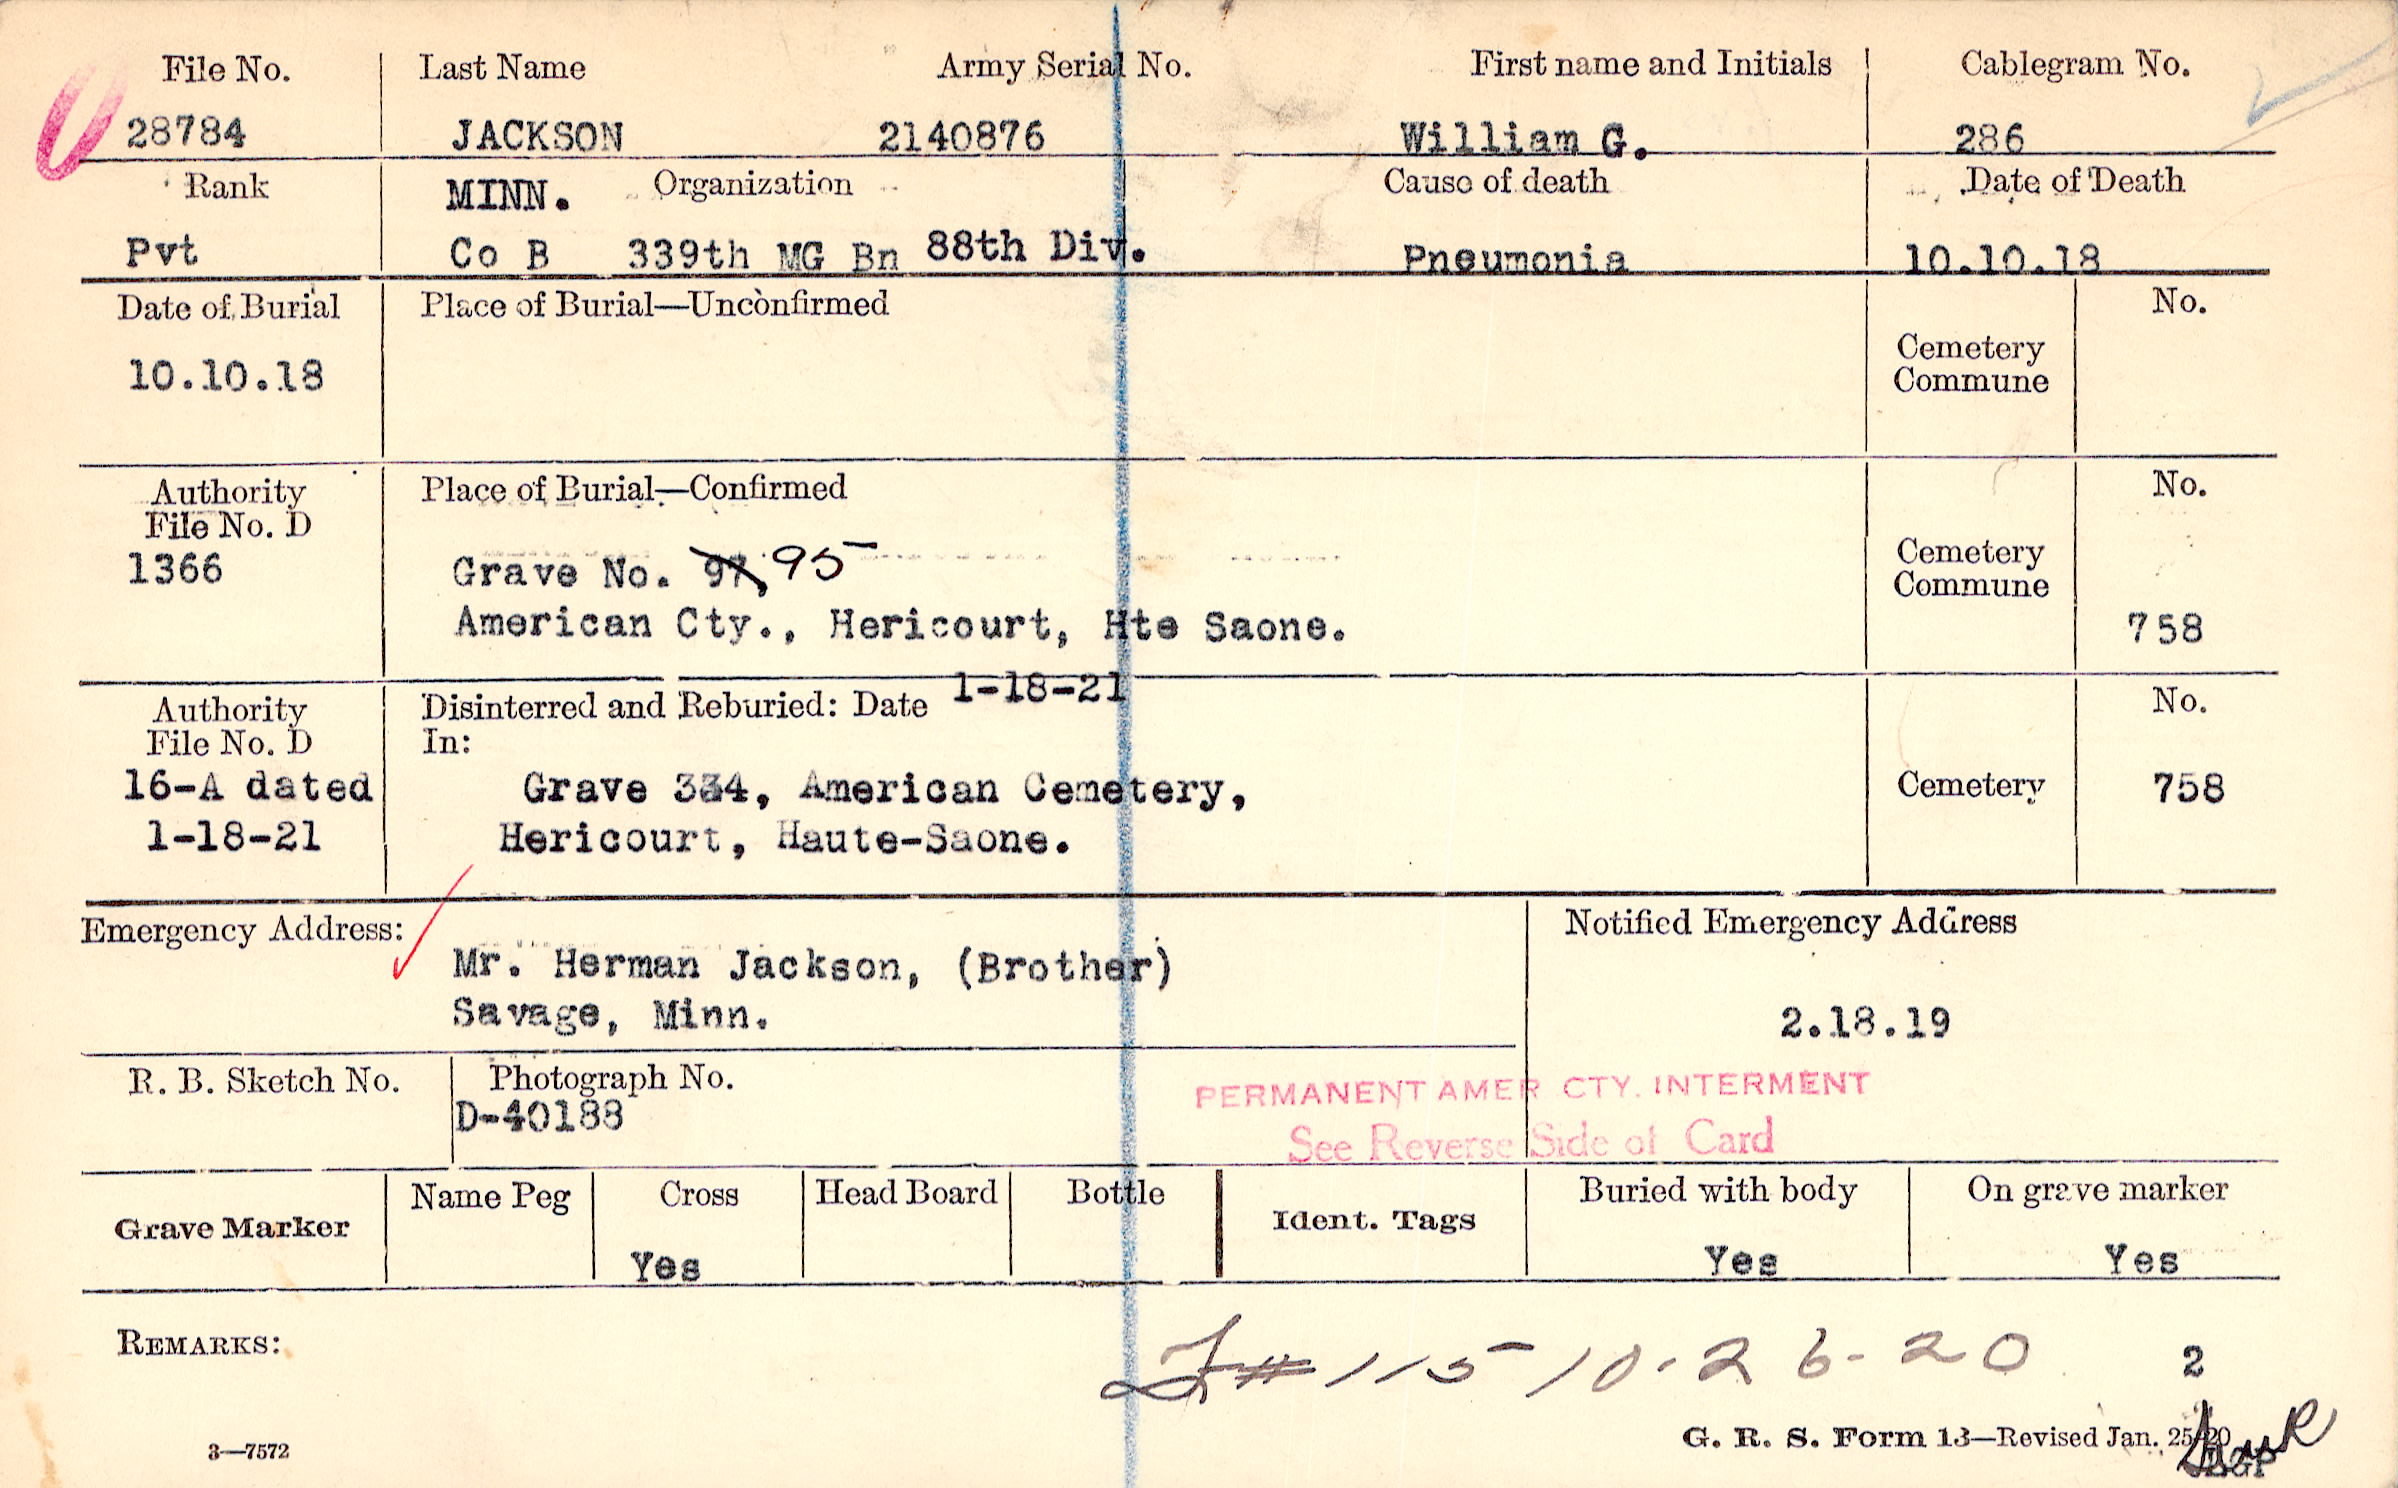 File No. Last Name Army Serial No. First name and Initials Cablegram No.
28784 JACKSON 2140876 William G. 286
Rank MINN. Organization Cause of death Date of Death
Pvt Co B 339th MG Bn 88th Div. Pneumonia 10.10.18
Date of Burial Place of Burial—Unconfirmed No.
10.10.18 Cemetery
Commune
Authority Place of Burial—Confirmed No.
File No. D Cemetery
1366 Grave No. 97, 95 Commune
American Cty., Hericourt, Hte Saone. 758
Authority Disinterred and Reburied: Date 1-18-21 No.
File No. D In:
16-A dated Grave 334, American Cemetery, Cemetery 758
1-18-21 Hericourt, Haute-Saone.
Emergency Address: Notified Emergency Address
Mr. Herman Jackson, (Brother)
Savage, Minn. 2.18.19
R. B. Sketch No. Photograph No.
D-40188
PERMANENT AMER CTY. INTERMENT
See Reverse Side of Card
Grave Marker Name Peg Cross Head Board Bottle Ident. Tags Buried with body On grave marker
Yes Yes Yes
REMARKS: # 115 10-26-20 2
3—7572 G. R. S. Form 13—Revised Jan. 25-20